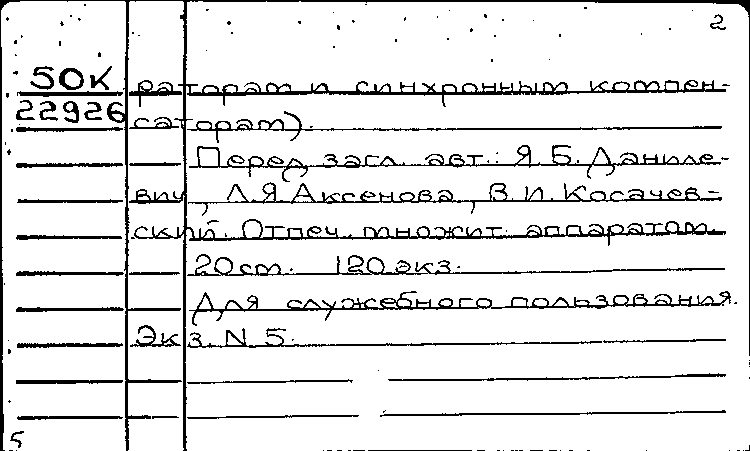 2
50К раторам и синхронным компен-
22926 саторам).
Перед загл. авт.: Я.Б. Даниле-
вич, Л.Я. Аксенова, В.И. Косачев-
ский. Отпеч. множит. аппаратом.
20 см. 120 экз.
Для служебного пользования.
Экз. N 5.
5